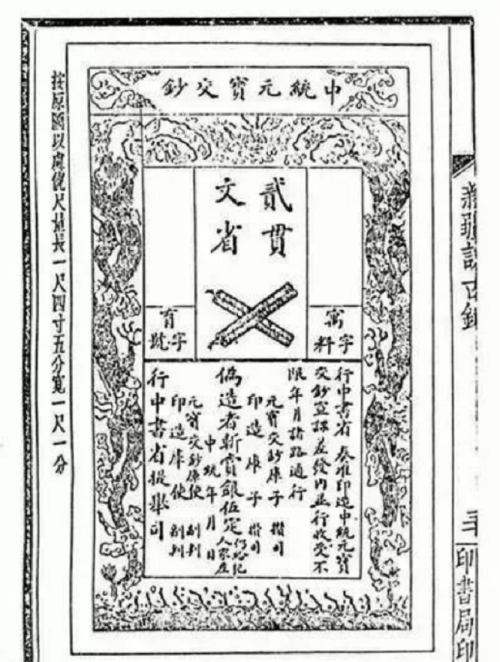 新疆訪古錄
印書局印
中統元寶交鈔
貳貫
文省
寓
字料
育
字號
行中書省 奏准印造中統元寶
交鈔宣課差發內並行收受不
限年月諸路通行
元寶交鈔庫子 攢司
印造庫子 攢司
偽造者斬賞銀伍定 仍給犯人家產
中統 年 月 日
元寶交鈔庫使 副判
印造庫使 副判
行中書省提舉司
按原圖以虞俿尺量長一尺四寸五分寬一尺一分